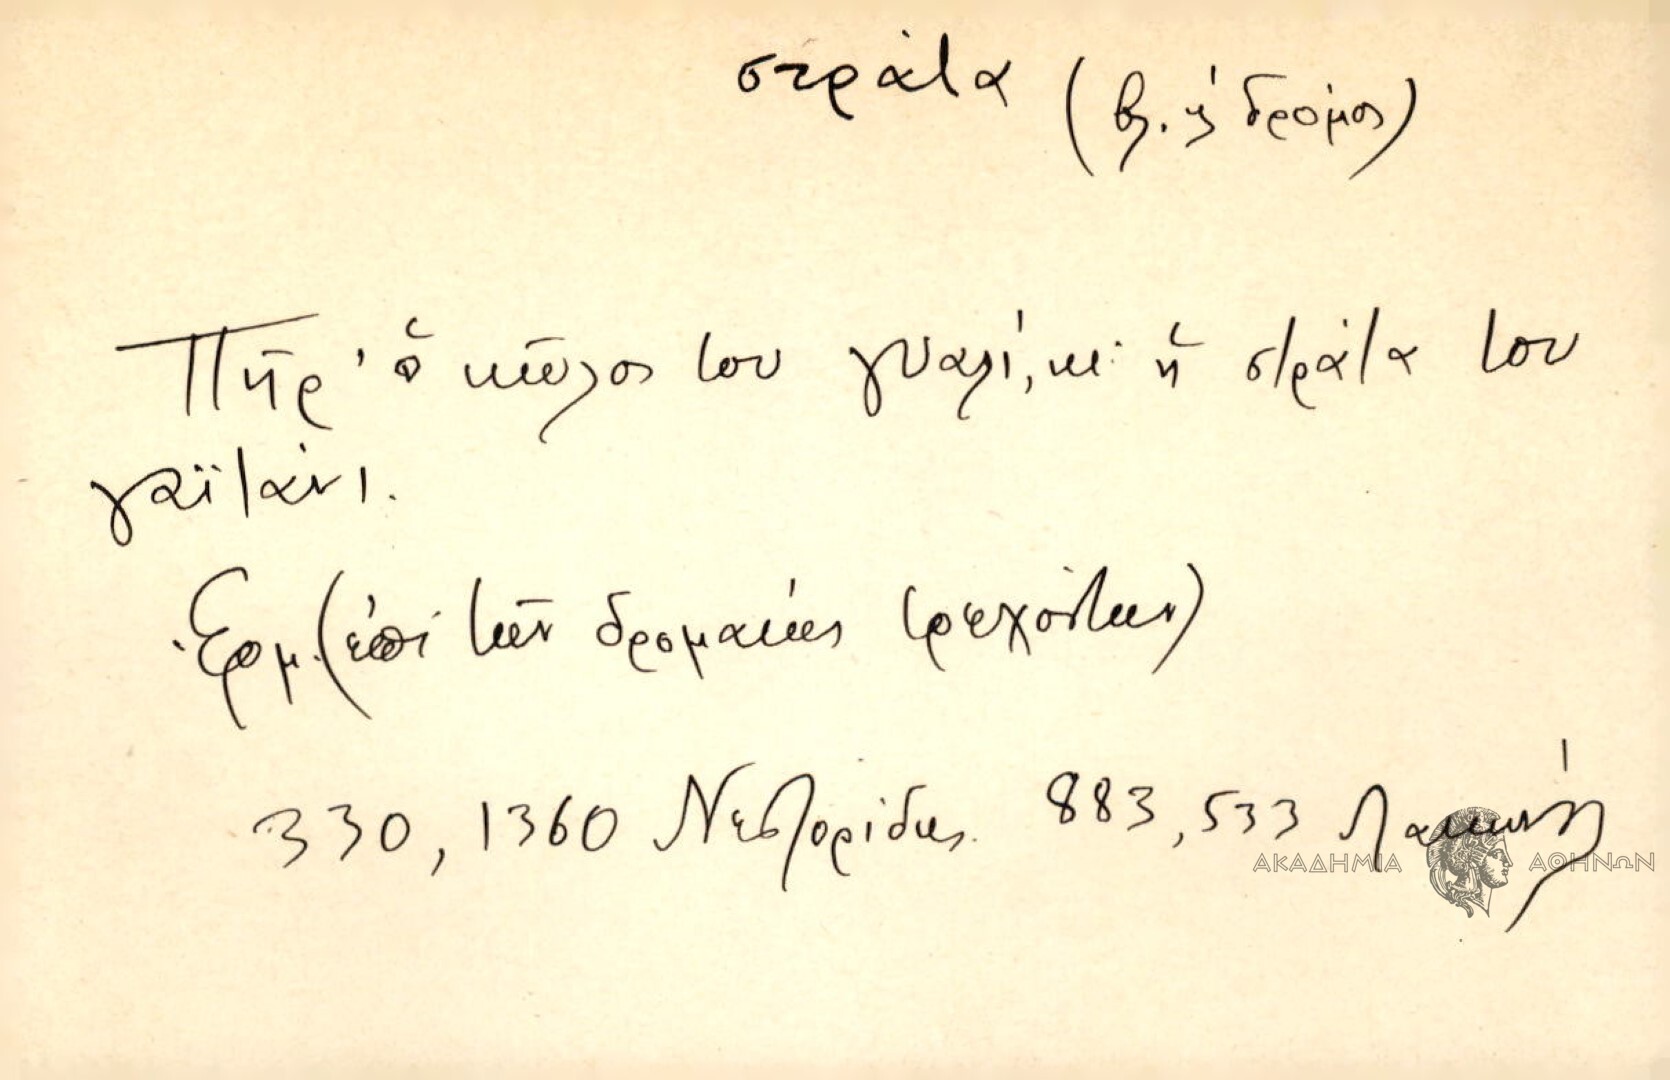 στράτα (βλ. κ' δρόμος)
Πῆρ' ὁ κῶλος του γυαλί, κι ἡ στράτα του
γαϊτάνι.
Ἑρμ. (ἐπὶ τῶν δρομαίως τρεχόντων)
330, 1360 Νεστορίδης 883, 533 Λακωνία
ΑΚΑΔΗΜΙΑ ΑΘΗΝΩΝ